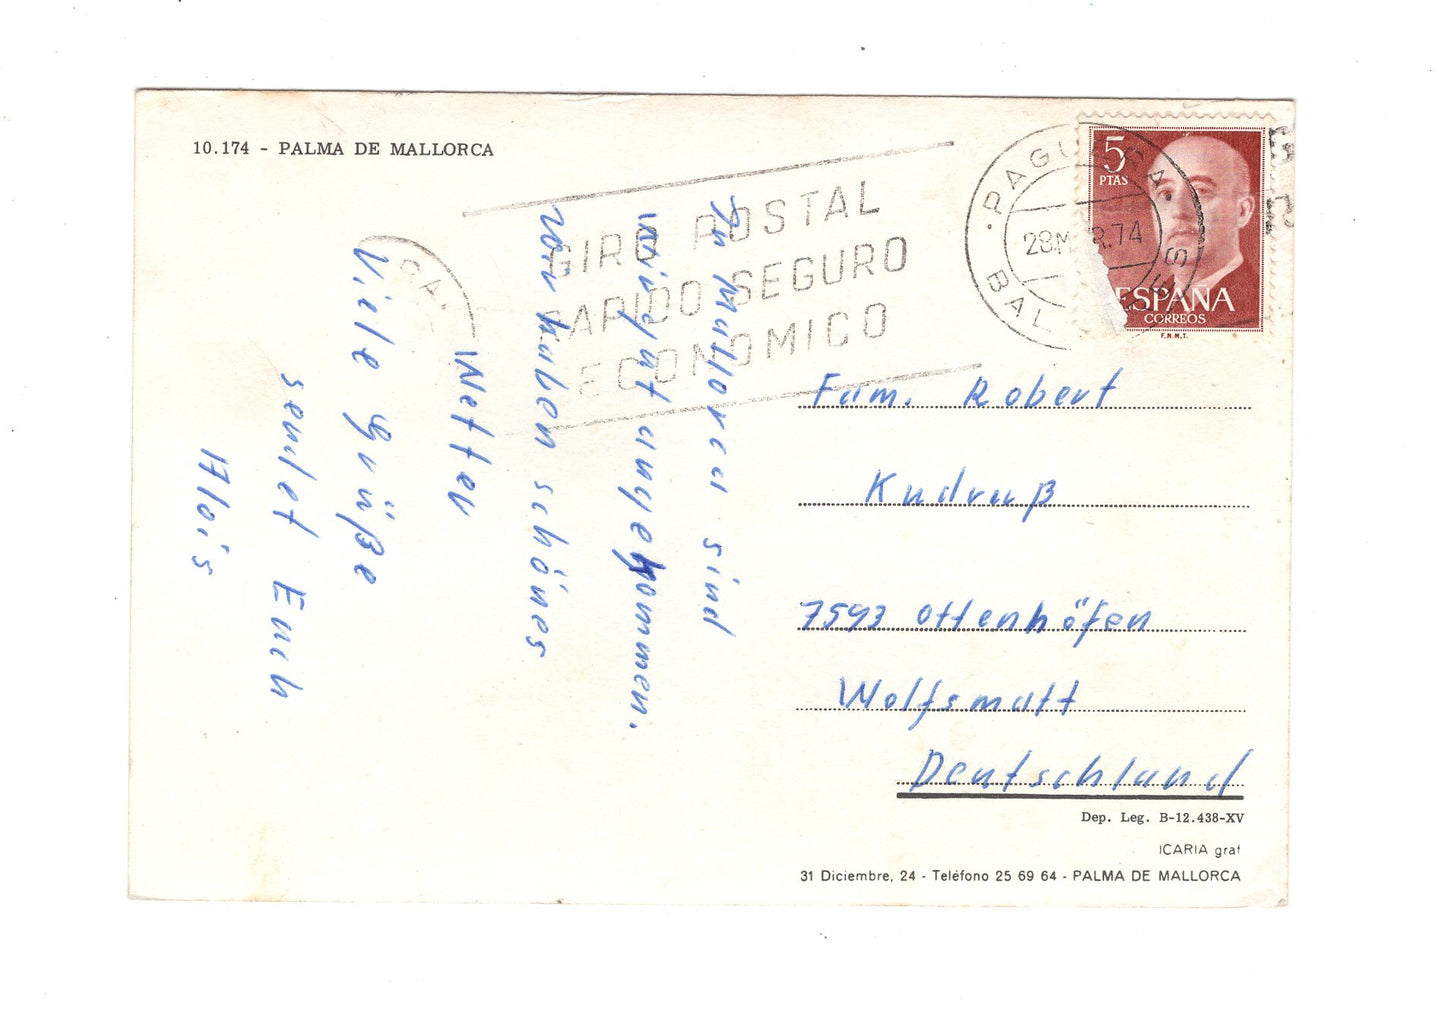 10.174 - PALMA DE MALLORCA
In Mallorca sind
wir gut angekommen.
wir haben schönes
Wetter
Viele Grüße
sendet Euch
Alois
GIRO POSTAL
RAPIDO SEGURO
ECONOMICO
PAGUERA
28 MAR.74
BALEARES
5
PTAS
ESPAÑA
CORREOS
F.N.M.T.
Fam. Robert
Kudruß
7593 Ottenhöfen
Wolfsmatt
Deutschland
Dep. Leg. B-12.438-XV
ICARIA graf
31 Diciembre, 24 - Teléfono 25 69 64 - PALMA DE MALLORCA